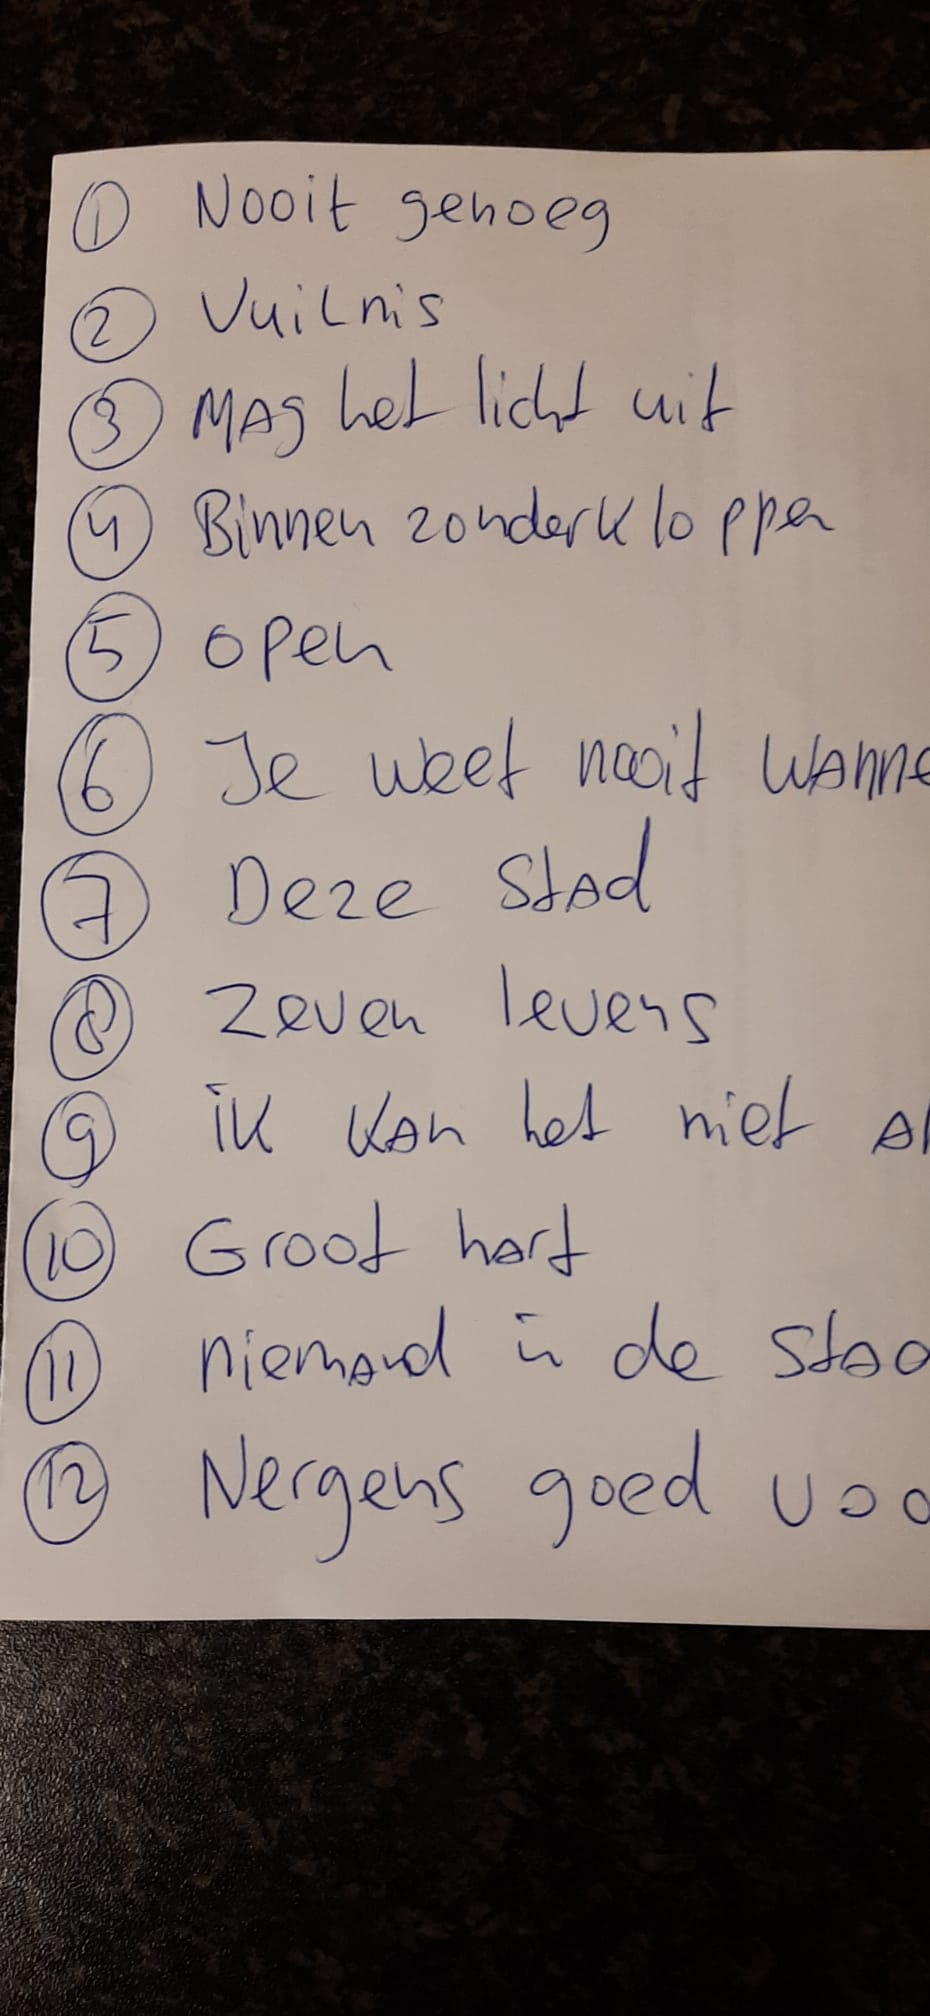 1 Nooit genoeg
2 Vuilnis
3 MAg het licht uit
4 Binnen zonder kloppen
5 open
6 Je weet nooit wanne
7 Deze stad
8 Zeven levens
9 ik kan het niet al
10 Groot hart
11 niemand in de stad
12 Nergens goed voo